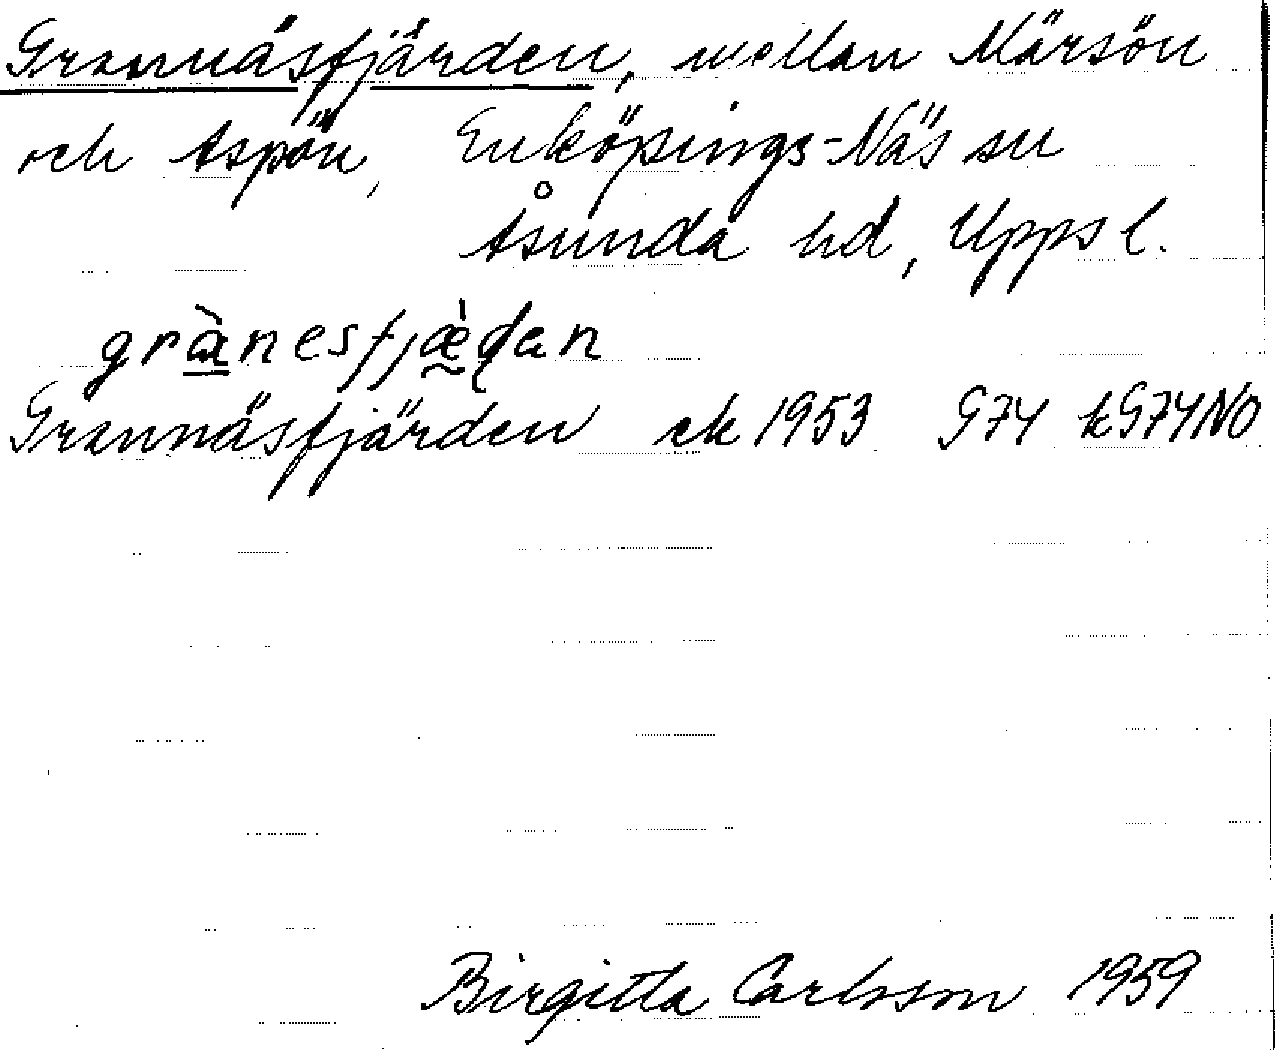 Grannäsfjärden, mellan Märsön
och Aspön, Enköpings-Näs sn
Åsunda hd, Upps l.
grànesfjæ̀dan
Grannäsfjärden ek 1953 G74 kG74NO
Birgitta Carlsson 1959